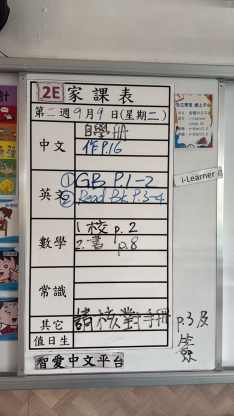 2E 家課表
第二週9月9日(星期二)
中文
自學冊
作P.16
英文
①GB P.1-2
②Read Bk P.3-4
數學
1. 校 p.2
2. 書 p.8
常識
其它
請核對手冊 p.3 及
簽
值日生
智愛中文平台
i-Learner